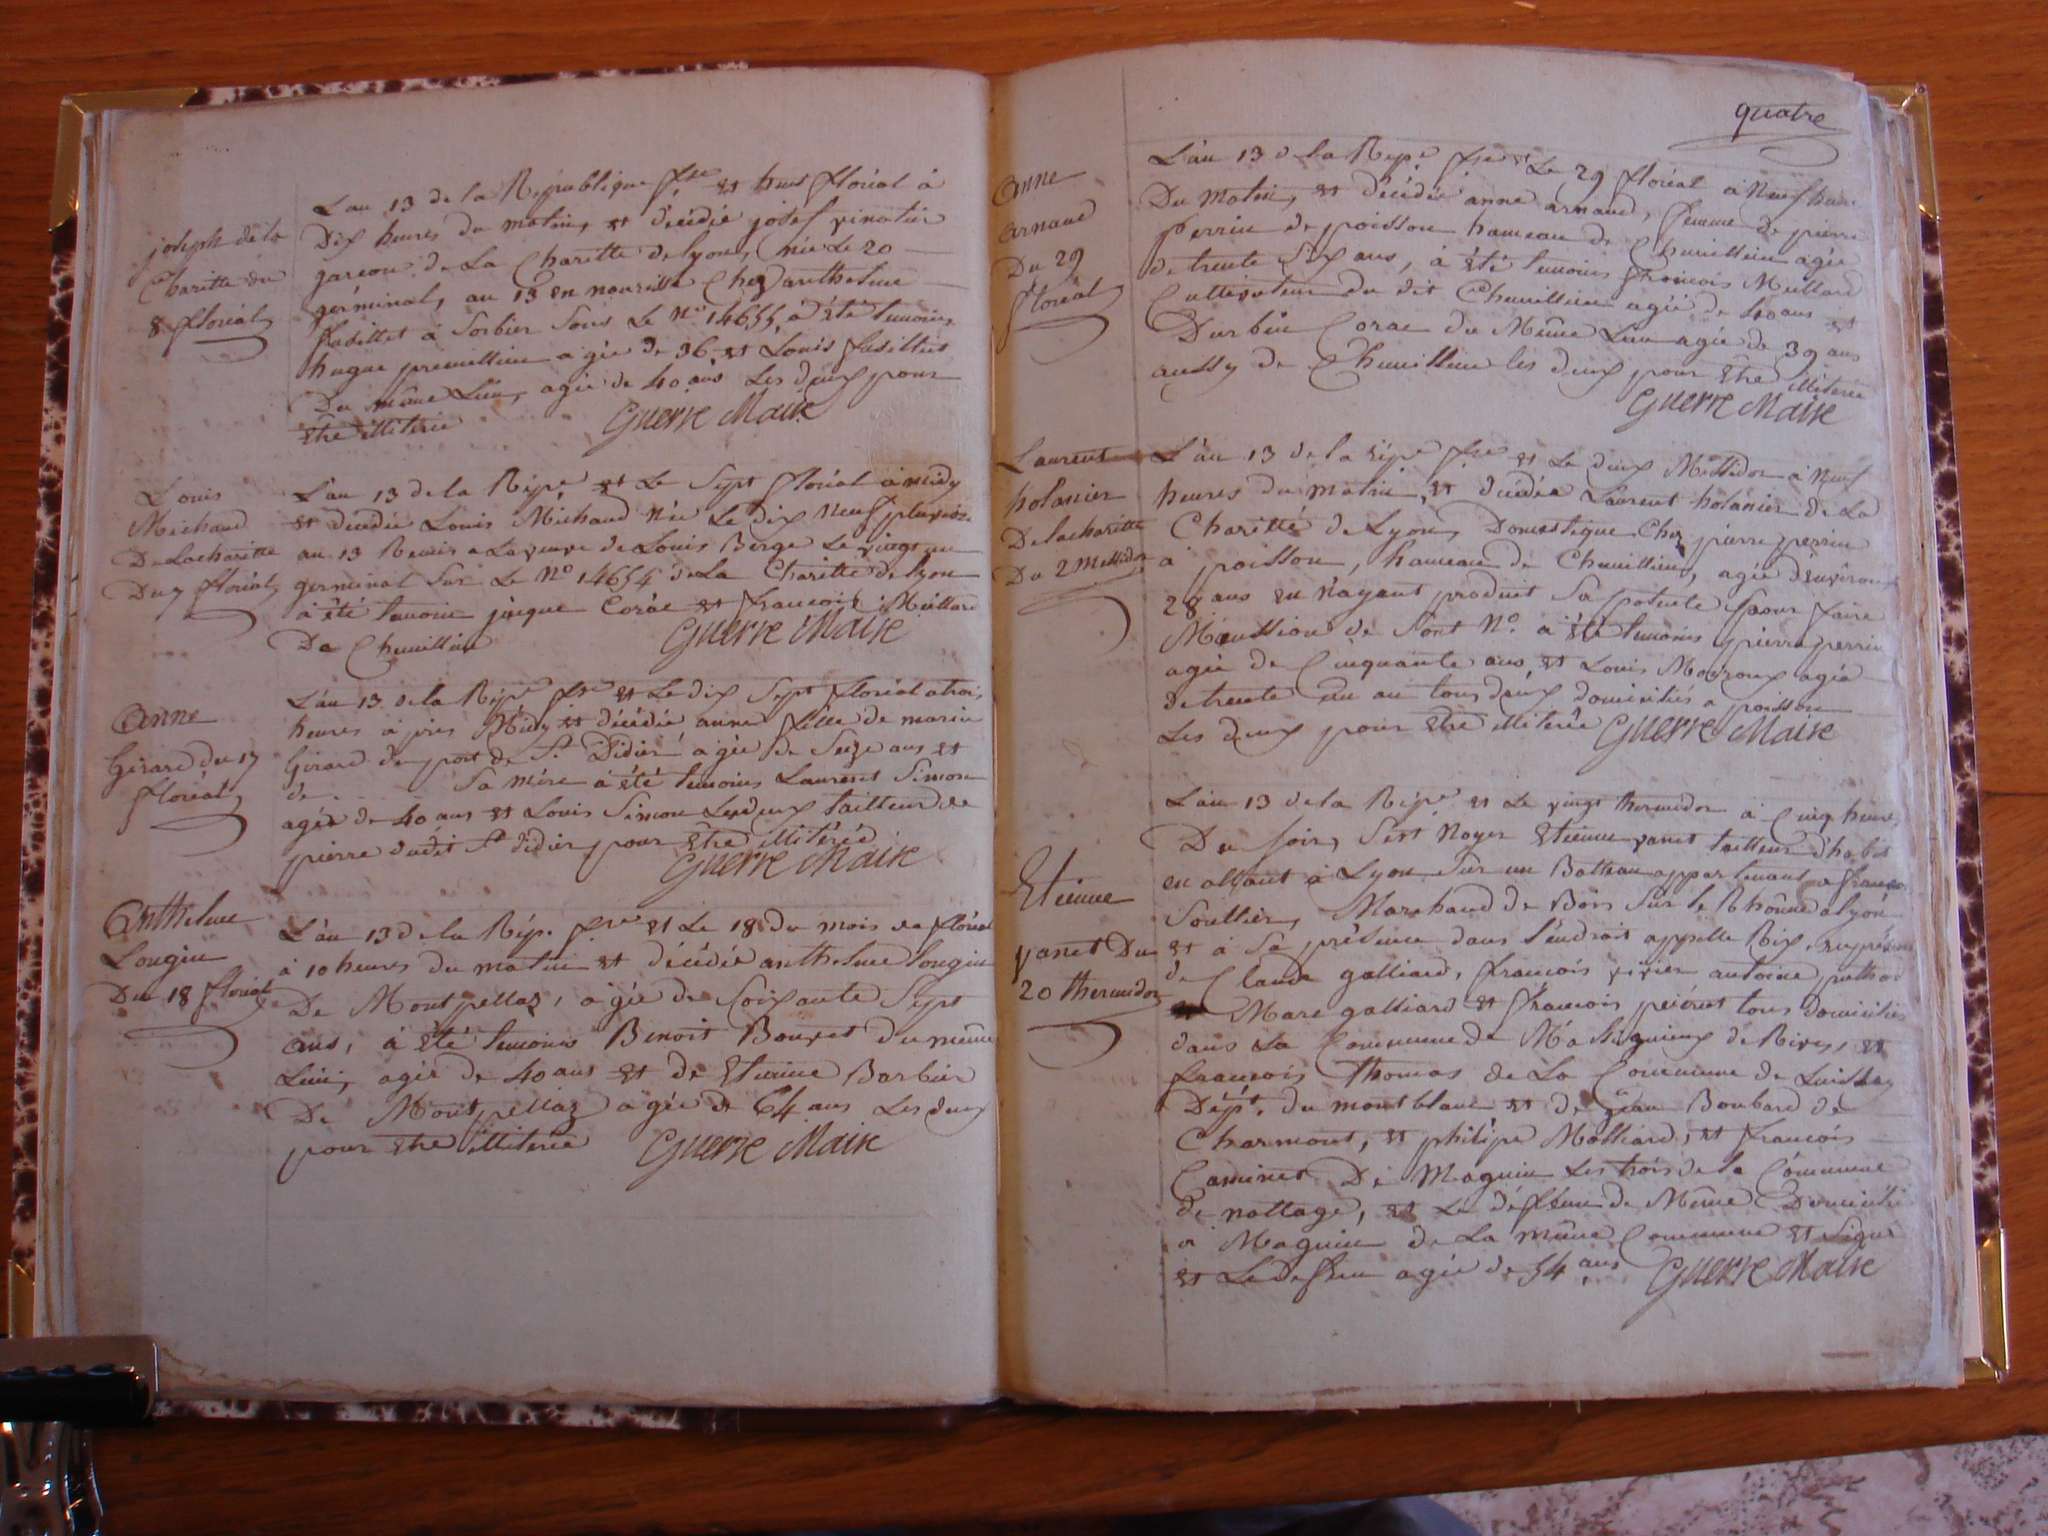 joseph de la
Charitte du
8 floréal
L'an 13 de la République fse et huit floréal à
Dix heures du matin, et décédée josef vinatier
garcon de La Charitte de lyon, née Le 20
germinal, au 13 en nourisse Chez anthelme
fusillet à Sorbier Sous Le No 14655, a été temoins
hugue premellieu agée de 36 et Louis fusillet
Du même Lieu, agée de 40 ans Les deux pour
Etre illiterée Guerre Maire
Louis
Michaud
De Lacharitte
Du 7 floréal
L'an 13 de la Répe et Le Sept floréal à midy
et décédée Louis Michaud née Le dix neuf pluviose
au 13 Remis a La veuve de Louis Berge Le vingt un
germinal Sur Le No 14654 de La Charitte de lyon
à été temoin jacque Corac et francois Mullard
De Chemillieu Guerre Maire
Anne
Girard du 17
floréal
L'an 13 de la Répe fse et Le dix Sept floréal a trois
heures à près Midy et décédée anne fille de marin
Girard du port de St Didier agée de Seize ans et
de Sa mére à été temoins Laurent Simon
agée de 40 ans et Louis Simon Les deux tailleur de
pierre dudit St didier, pour Etre illiterée
Guerre Maire
Anthelme
Longin
Du 18 floréal
L'an 13 de la Rép. fse et Le 18 du mois de floréal
à 10 heures du matin et décédée anthelme longin
De Montpellaz, agée de Soixante Sept
ans, à été temoins Benoit Bouvet du même
Lieu, agée de 40 ans et de Etienne Barbier
De Montpellaz agée de 64 ans Les deux
pour Etre illiterée Guerre Maire
quatre
Anne
arnaud
Du 29
floréal
L'an 13 de la Répe fse et Le 29 floréal à Neuf heure
Du Matin, et décédée anne arnaud, femme de pierre
perrin de poisson hameau de Chemillieu agée
de trente Six ans, à été temoins francois Mullard
Cultivateur du dit Chemillieu agée de 40 ans et
Durbin Corac du Même Lieu agée de 39 ans
aussy de Chemillieu les deux pour Etre illiterée
Guerre Maire
Laurent
holanier
De lacharitte
Du 2 Messidor
L'àn 13 de la Répe fse et Le deux Messidor a Neuf
heures du matin, et décédée Laurent holanier de La
Charitté de Lyon, Domestique Chez pierre perrin
à poisson, hameau de Chemillieu, agée d'environ
28 ans en Nayant produit Sa patente pour faire
Manssion de Sont No. à été temoins pierre perrin
agée de Cinquante ans et Louis Moiroux agée
de trente un an tous deux domiciliés a poisson
Les deux pour Etre illiterée Guerre Maire
Etienne
vanet Du
20 thermidor
L'an 13 de la Répe et Le vingt thermidor à Cinq heure
Du Soir, S'est Noyer Etienne vanet tailleur d'habit
en allant à Lyon Sur un Batteau appartenant a francois
Soullier, Marchand de Bois Sur le Rhône a lyon
et à Sa présence dans l'endroit appelle Rix, en présence
de Claude galliard, francois vivier antoine puthod
Marc galliard et francois peiéret tous domiciliés
dans La Commune de Massignieux de Rives, et
francois thomas de La Commune de
Dépt. du montblanc et de jean Boubard de
Charmont, et philipe Molliard, et francois
Caminet De Magnieu Les trois de la Commune
de nattage, et Le déffeun de Même Domicilié
a Magnieu de La même Commune et Signé
et Le deffeun agée de 54 ans Guerre Maire